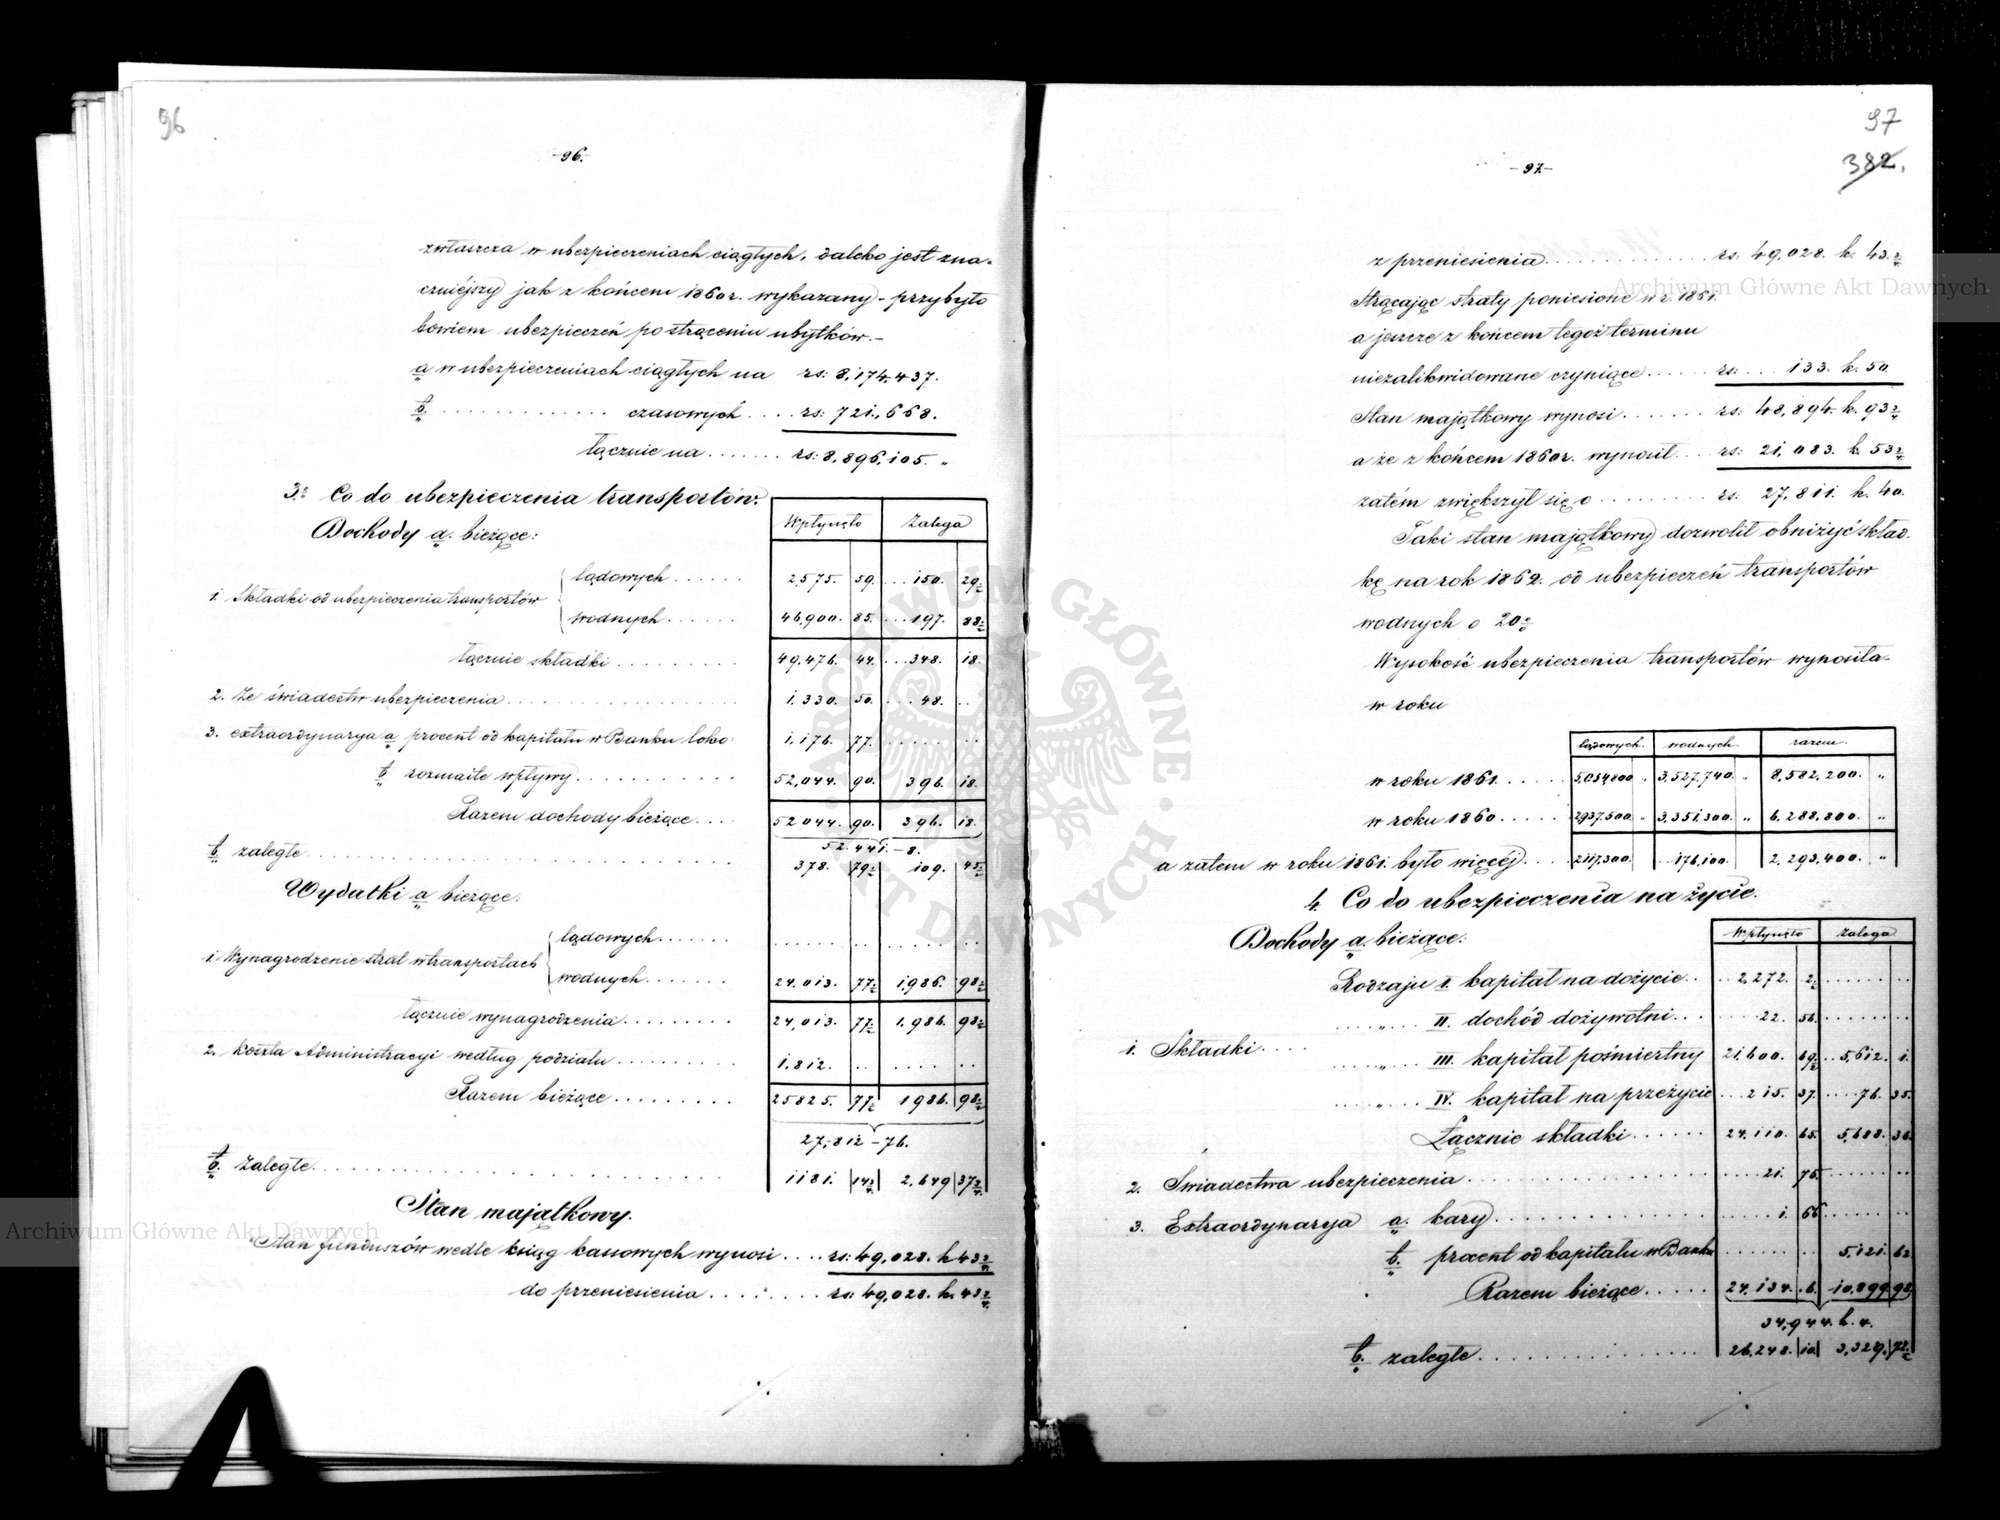 96
-96.-
zwłaszcza w ubezpieczeniach ciągłych, daleko jest zna=
czniéjszy jak z końcem 1860 r. wykazany - przybyło
bowiem ubezpieczeń po strąceniu ubytków.-
a w ubezpieczeniach ciągłych na rs: 8,174,437.
b. . . . . czasowych . . . . rs: 721,668.
łącznie na . . . . . . rs: 8,896,105. „
3.° Co do ubezpieczenia transportów.
Wpłynęło Zalega
Dochody a. bieżące:
1. Składki od ubezpieczenia transportów
lądowych . . . . . . 2,575. 59. . . . 150. 29½
wodnych . . . . . . 46,900. 85. . . . 197. 88½
łącznie składki . . . . . . 49,476. 44. . . . 348. 18.
2. Ze świadectw ubezpieczenia . . . . . . 1,330. 50. . . . 48. . .
3. extraordynarya a procent od kapitału w Banku loko: 1,176. 77. . . . .
b rozmaite wpływy . . . . . . 52,044. 90. 396. 18.
Razem dochody bieżące . . . . 52044. 90. 396. 18.
52.441.-8.
b. zaległe . . . . . . 378. 79½ 109. 45½
Wydatki a bieżące:
1. Wynagrodzenie strat w transportach
lądowych . . . . . .
wodnych . . . . . . 24,013. 77½ 1,986. 98½
łącznie wynagrodzenia . . . . . . 24,013. 77½ 1,986. 98½
2. Koszta Administracyi według podziału . . . . . . 1,812. . . . . . .
Razem bieżące . . . . . . 25825. 77½ 1986. 98½
27,812-76.
b. Zaległe . . . . . . 1181. 14¾ 2,649 37¾
Stan majątkowy.
Stan funduszów wedle ksiąg kassowych wynosi . . . . rs: 49,028. k 43¾
do przeniesienia . . . . . . rs: 49,028. k. 43¾
97
382.
-97-
z przeniesienia . . . . . . rs: 49,028. k. 43¾
Strącając straty poniesione w r. 1861.
a jeszcze z końcem tegoż terminu
niezalikwidowane czyniące . . . . . . rs: . . . 133. k. 50.
Stan majątkowy wynosi . . . . . . rs: 48,894. k. 93¾
a że z końcem 1860 r. wynosił . . . rs: 21,083. k. 53¾
zatém zwiększył się o . . . . . . rs: 27,811. k. 40.
Taki stan majątkowy dozwolił obniżyć skład=
kę na rok 1862. od ubezpieczeń transportów
wodnych o 20%
Wysokość ubezpieczenia transportów wynosiła=
w roku
lądowych. wodnych. razem.
w roku 1861. . . . . . 5,054,800 „ 3,527,740. „ 8,582,200. „
w roku 1860 . . . . . 2,937,500 „ 3,351,300. „ 6,288,800. „
a zatem w roku 1861. było więcéj . . . . 2117,300. . . 176,100. 2,293,400. „
4. Co do ubezpieczenia na życie.
Wpłynęło Zalega
Dochody a. bieżące:
Rodzaju I. kapitał na dożycie . . . . 2,272. 2½ . . . . . .
„ II. dochód dożywotni . . . . . 22. 56. . . . . .
1. Składki . . . .
„ III. kapitał pośmiertny 21,600. 69½ . . 5,612. 1.
„ IV. kapitał na przeżycie . . . 215. 37. . . . 76. 35.
Łącznie składki . . . . . . 24,110. 65. 5,688. 36.
2. Świadectwa ubezpieczenia . . . . . . 21. 75 . . . . .
3. Extraordynarya a. kary . . . . . . 1. 66 . . . . .
b. procent od kapitału w Banku . . . . . . 5,121. 62
Razem bieżące . . . . . 24,134. 6. 10,899. 98.
34,944. k. 4.
b. zaległe . . . . . . 26,248. 10 3,329. 72½
Archiwum Główne Akt Dawnych
Archiwum Główne Akt Dawnych
ARCHIWUM GŁÓWNE AKT DAWNYCH